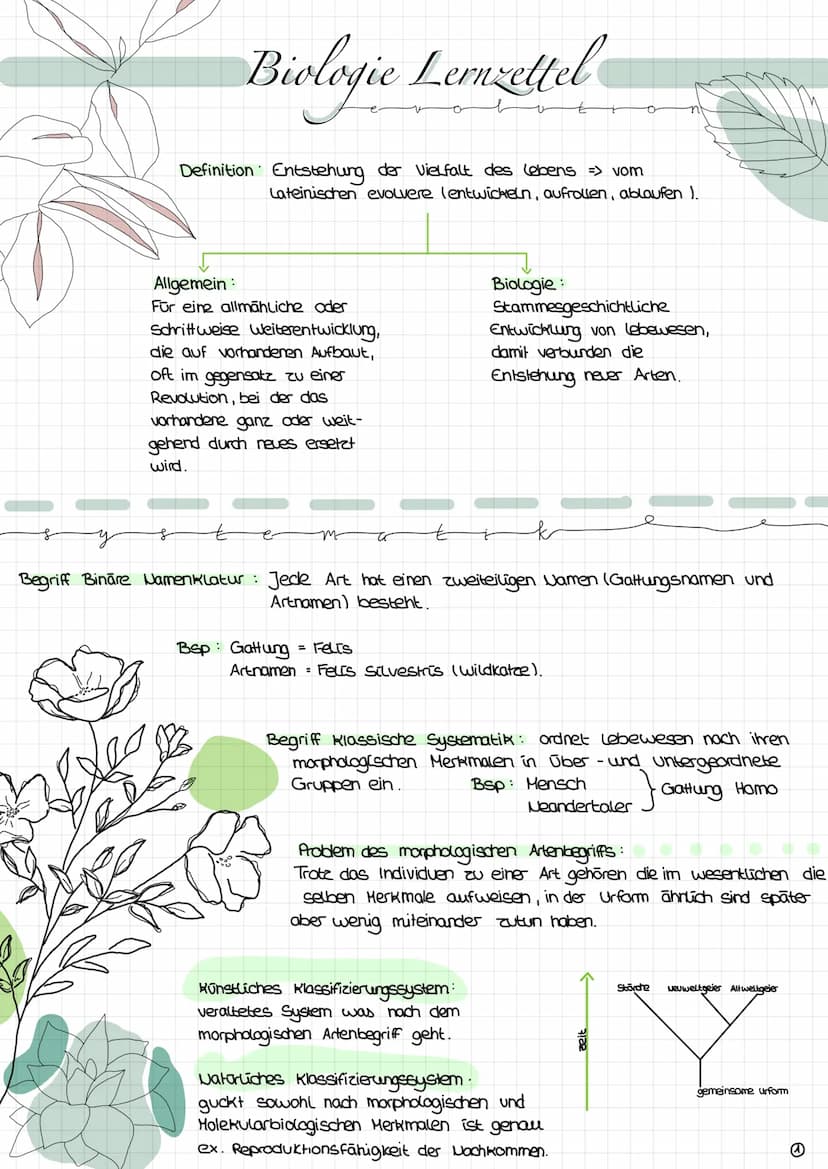 Biologie Lernzettel
evolution
Definition: Entstehung der Vielfalt des Lebens => vom
Lateinischen evolvere (entwickeln, aufrollen, ablaufen).
Allgemein:
Für eine allmähliche oder
Schrittweise Weiterentwicklung,
die auf vorhandenen Aufbaut,
oft im gegensatz zu einer
Revolution, bei der das
vorhandene ganz oder weit-
gehend durch neues ersetzt
wird.
Biologie:
Stammesgeschichtliche
Entwicklung von Lebewesen,
damit verbunden die
Entstehung neuer Arten.
systematik
Begriff Binäre Namenklatur: Jede Art hat einen zweiteiligen Namen (Gattungsnamen und
Artnamen) besteht.
Bsp: Gattung = Felis
Artnamen = Felis Silvestris (Wildkatze).
Begriff Klassische Systematik: ordnet Lebewesen nach ihren
morphologischen Merkmalen in Über-und untergeordnete
Gruppen ein. Bsp: Mensch
Neandertaler } Gattung Homo
Problem des morphologischen Artenbegriffs:
Trotz das Individuen zu einer Art gehören die im wesentlichen die
selben Merkmale aufweisen, in der Urform ähnlich sind später
aber wenig miteinander zutun haben.
Künstliches Klassifizierungssystem:
veraltetes System was nach dem
morphologischen Artenbegriff geht.
Natürliches Klassifizierungssystem.
guckt sowohl nach morphologischen und
Molekularbiologischen Merkmalen ist genau
ex. Reproduktionsfähigkeit der Nachkommen.
zeit
Störche Neuweltgeier Altweltgeier
gemeinsame Urform
1